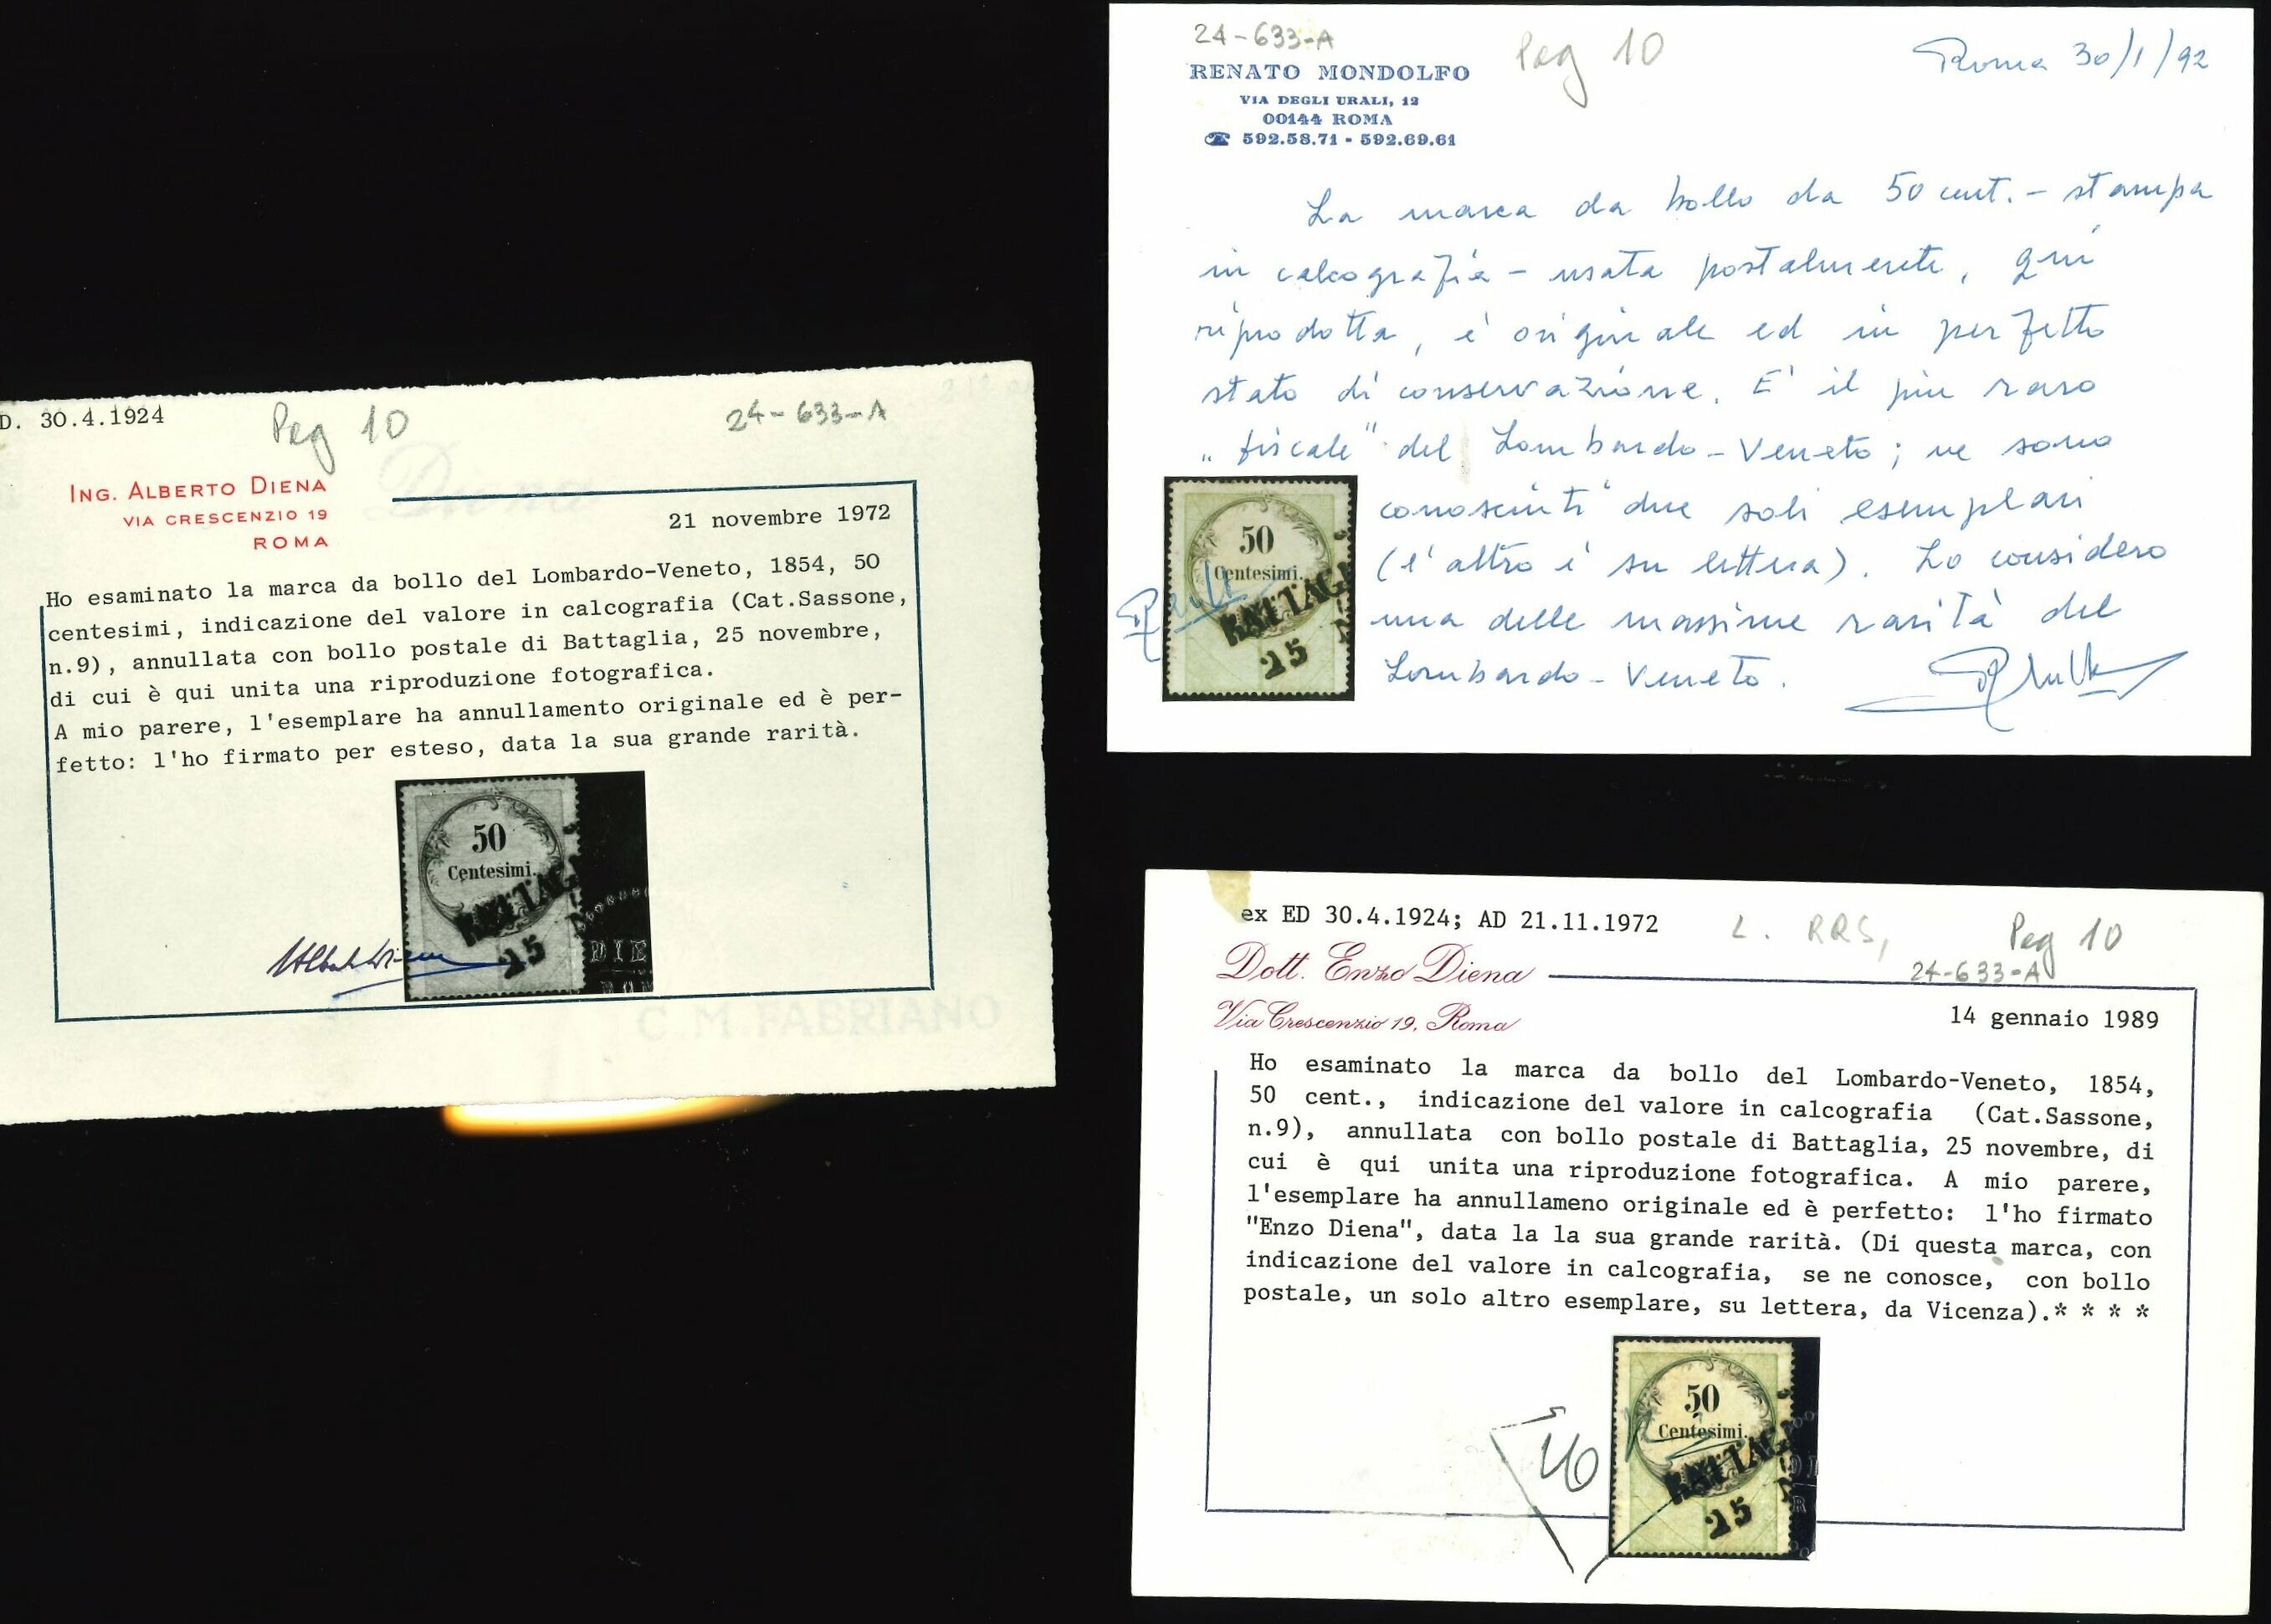 D. 30.4.1924
Peg 10
24-633-A
ING. ALBERTO DIENA
VIA CRESCENZIO 19
ROMA
21 novembre 1972
Ho esaminato la marca da bollo del Lombardo-Veneto, 1854, 50
centesimi, indicazione del valore in calcografia (Cat.Sassone,
n.9), annullata con bollo postale di Battaglia, 25 novembre,
di cui è qui unita una riproduzione fotografica.
A mio parere, l'esemplare ha annullamento originale ed è per-
fetto: l'ho firmato per esteso, data la sua grande rarità.
50
Centesimi.
BATTAG
25
DIE
C M FABRIANO
24-633-A
Peg 10
Roma 30/1/92
RENATO MONDOLFO
VIA DEGLI URALI, 12
00144 ROMA
☎ 592.58.71 - 592.69.61
La marca da bollo da 50 cent. - stampa
in calcografia - usata postalmente, qui
riprodotta, è originale ed in perfetto
stato di conservazione. E' il più raro
"fiscale" del Lombardo-Veneto; ne sono
conosciuti due soli esemplari
(l'altro è su lettera). Lo considero
una delle massime rarità del
Lombardo-Veneto.
50
Centesimi.
BATTAG
25
ex ED 30.4.1924; AD 21.11.1972
L. RRS,
Peg 10
24-633-A
Dott. Enzo Diena
Via Crescenzio 19, Roma
14 gennaio 1989
Ho esaminato la marca da bollo del Lombardo-Veneto, 1854,
50 cent., indicazione del valore in calcografia (Cat.Sassone,
n.9), annullata con bollo postale di Battaglia, 25 novembre, di
cui è qui unita una riproduzione fotografica. A mio parere,
l'esemplare ha annullameno originale ed è perfetto: l'ho firmato
"Enzo Diena", data la la sua grande rarità. (Di questa marca, con
indicazione del valore in calcografia, se ne conosce, con bollo
postale, un solo altro esemplare, su lettera, da Vicenza).* * * *
50
Centesimi.
BATTAG
25